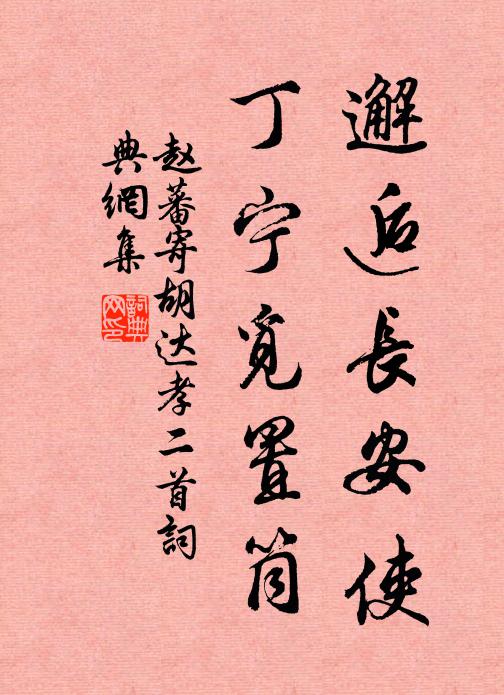 邂逅長安使
丁宁覓置筒
赵蕃寄胡达孝二首詞
典網集
詞典网印